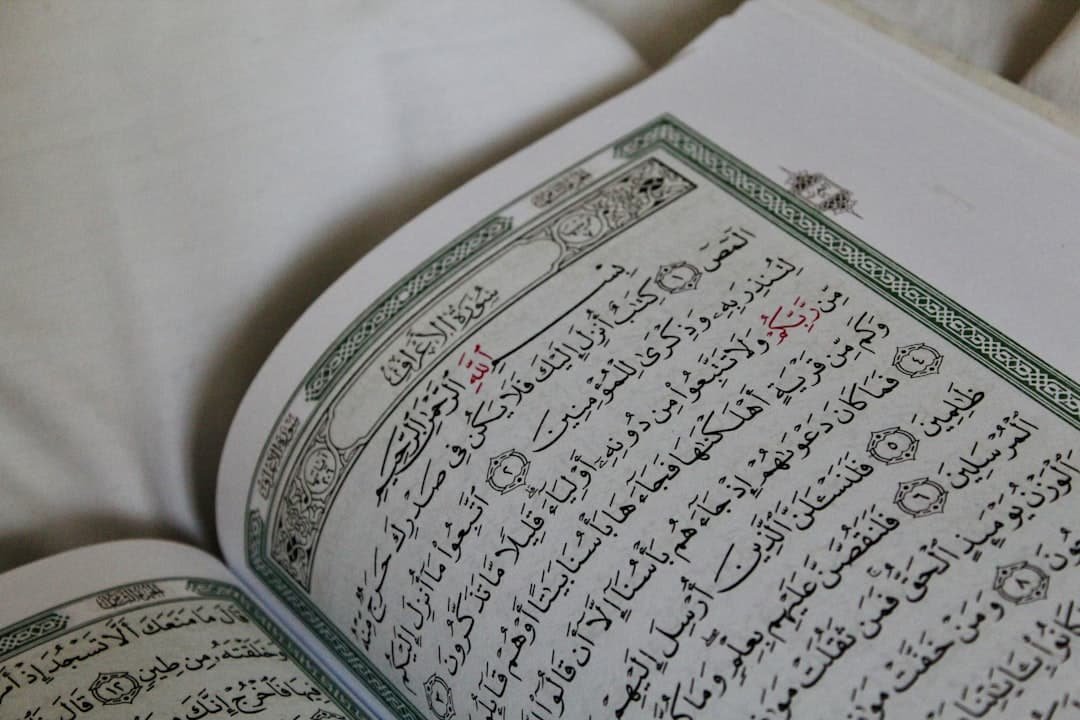 سُورَةُ الأَعْرَافِ
سُورَةُ الأَعْرَافِ
بِسْمِ ٱللَّهِ ٱلرَّحْمَٰنِ ٱلرَّحِيمِ
الٓمٓصٓ ١ كِتَٰبٌ أُنزِلَ إِلَيْكَ فَلَا يَكُن فِى صَدْرِكَ حَرَجٌ مِّنْهُ
لِتُنذِرَ بِهِۦ وَذِكْرَىٰ لِلْمُؤْمِنِينَ ٢ ٱتَّبِعُوا۟ مَآ أُنزِلَ إِلَيْكُم
مِّن رَّبِّكُمْ وَلَا تَتَّبِعُوا۟ مِن دُونِهِۦٓ أَوْلِيَآءَ قَلِيلًا مَّا تَذَكَّرُونَ ٣
وَكَم مِّن قَرْيَةٍ أَهْلَكْنَٰهَا فَجَآءَهَا بَأْسُنَا بَيَٰتًا أَوْ هُمْ
٤ فَمَا كَانَ دَعْوَىٰهُمْ إِذْ جَآءَهُم بَأْسُنَآ إِلَّآ أَن قَالُوٓا۟
ظَٰلِمِينَ ٥ فَلَنَسْـَٔلَنَّ ٱلَّذِينَ أُرْسِلَ إِلَيْهِمْ
ٱلْمُرْسَلِينَ ٦ فَلَنَقُصَّنَّ عَلَيْهِم بِعِلْمٍ وَمَا
وَٱلْوَزْنُ يَوْمَئِذٍ ٱلْحَقُّ فَمَن ثَقُلَتْ
٨ وَمَنْ خَفَّتْ
كَانُوا۟ بِـَٔايَٰتِنَا
قَالَ مَا مَنَعَكَ أَلَّا تَسْجُدَ إِذْ
خَلَقْتَهُۥ مِن طِينٍ ١٢ قَالَ
فِيهَا فَٱخْرُجْ إِنَّكَ